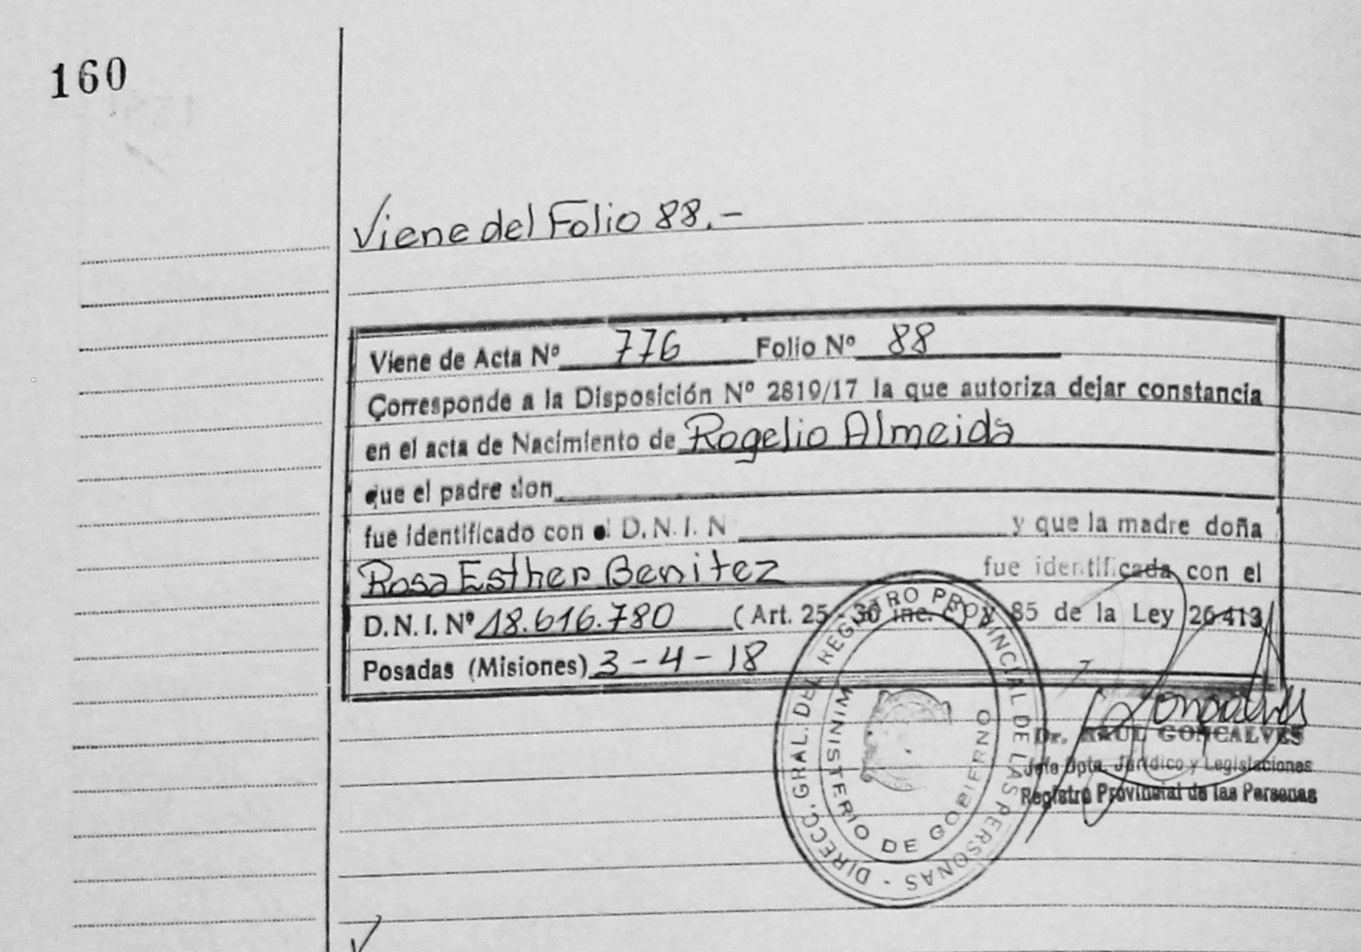 160
Viene del Folio 88.-
Viene de Acta Nº 776 Folio Nº 88
Corresponde a la Disposición Nº 2819/17 la que autoriza dejar constancia
en el acta de Nacimiento de Rogelio Almeida
que el padre don
fue identificado con el D.N.I. N y que la madre doña
Rosa Esther Benitez fue identificada con el
D.N.I. Nº 18.616.780 (Art. 25 - 30 inc. c y 85 de la Ley 26413
Posadas (Misiones) 3-4-18
DIRECC. GRAL. DEL REGISTRO PROVINCIAL DE LAS PERSONAS -
MINISTERIO DE GOBIERNO
Goncalves
Dr. RAUL GONCALVES
Jefe Dpto. Jurídico y Legislaciones
Registro Provincial de las Personas